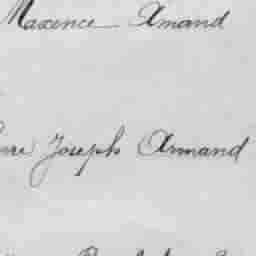 Maxence Amand
Joseph Armand